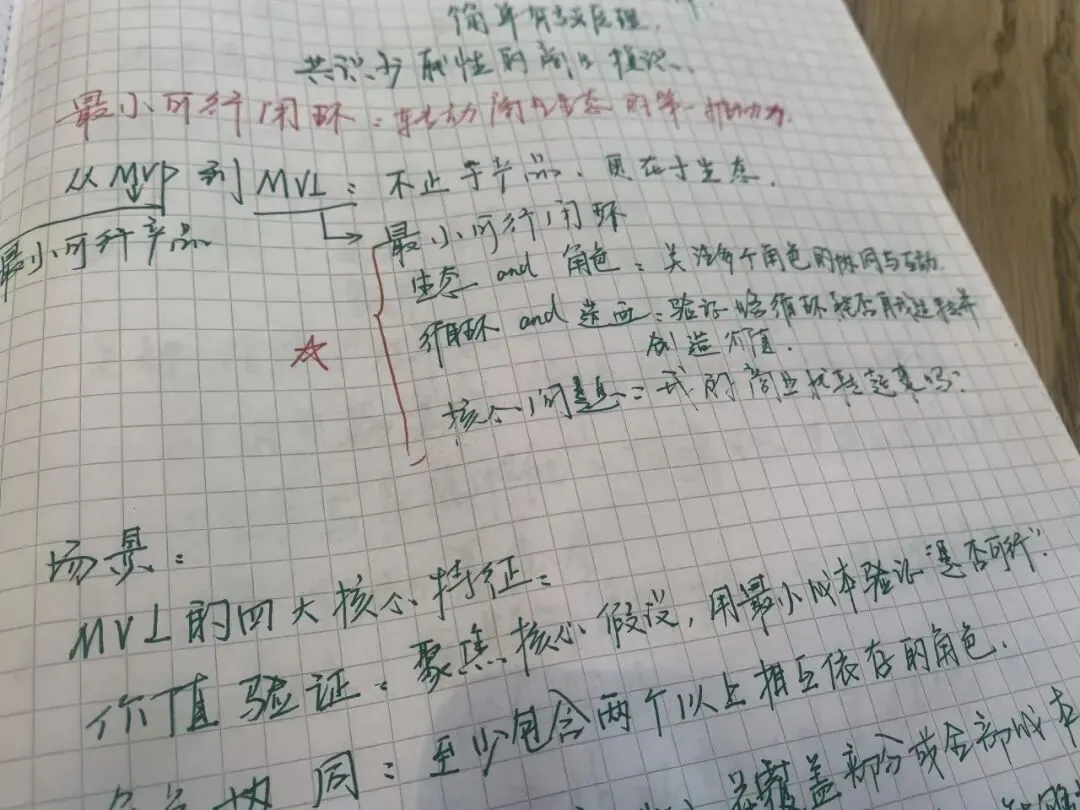 简单有效原理.
共识 的商业
最小可行闭环：转动商业生态的第一推动力.
从MVP到MVL：不止于产品、更在于生态.
最小可行产品
最小可行闭环
生态 and 角色：关注多个角色的协同与互动.
循环 and 单点：验证 循环能否 并
创造价值.
核心问题：我的商业 起来吗？
场景：
MVL的四大核心特征：
价值验证：聚焦核心假设，用最小成本验证"是否可行".
角色协同：至少包含两个以上相互依存的角色.
覆盖部分或全部成本